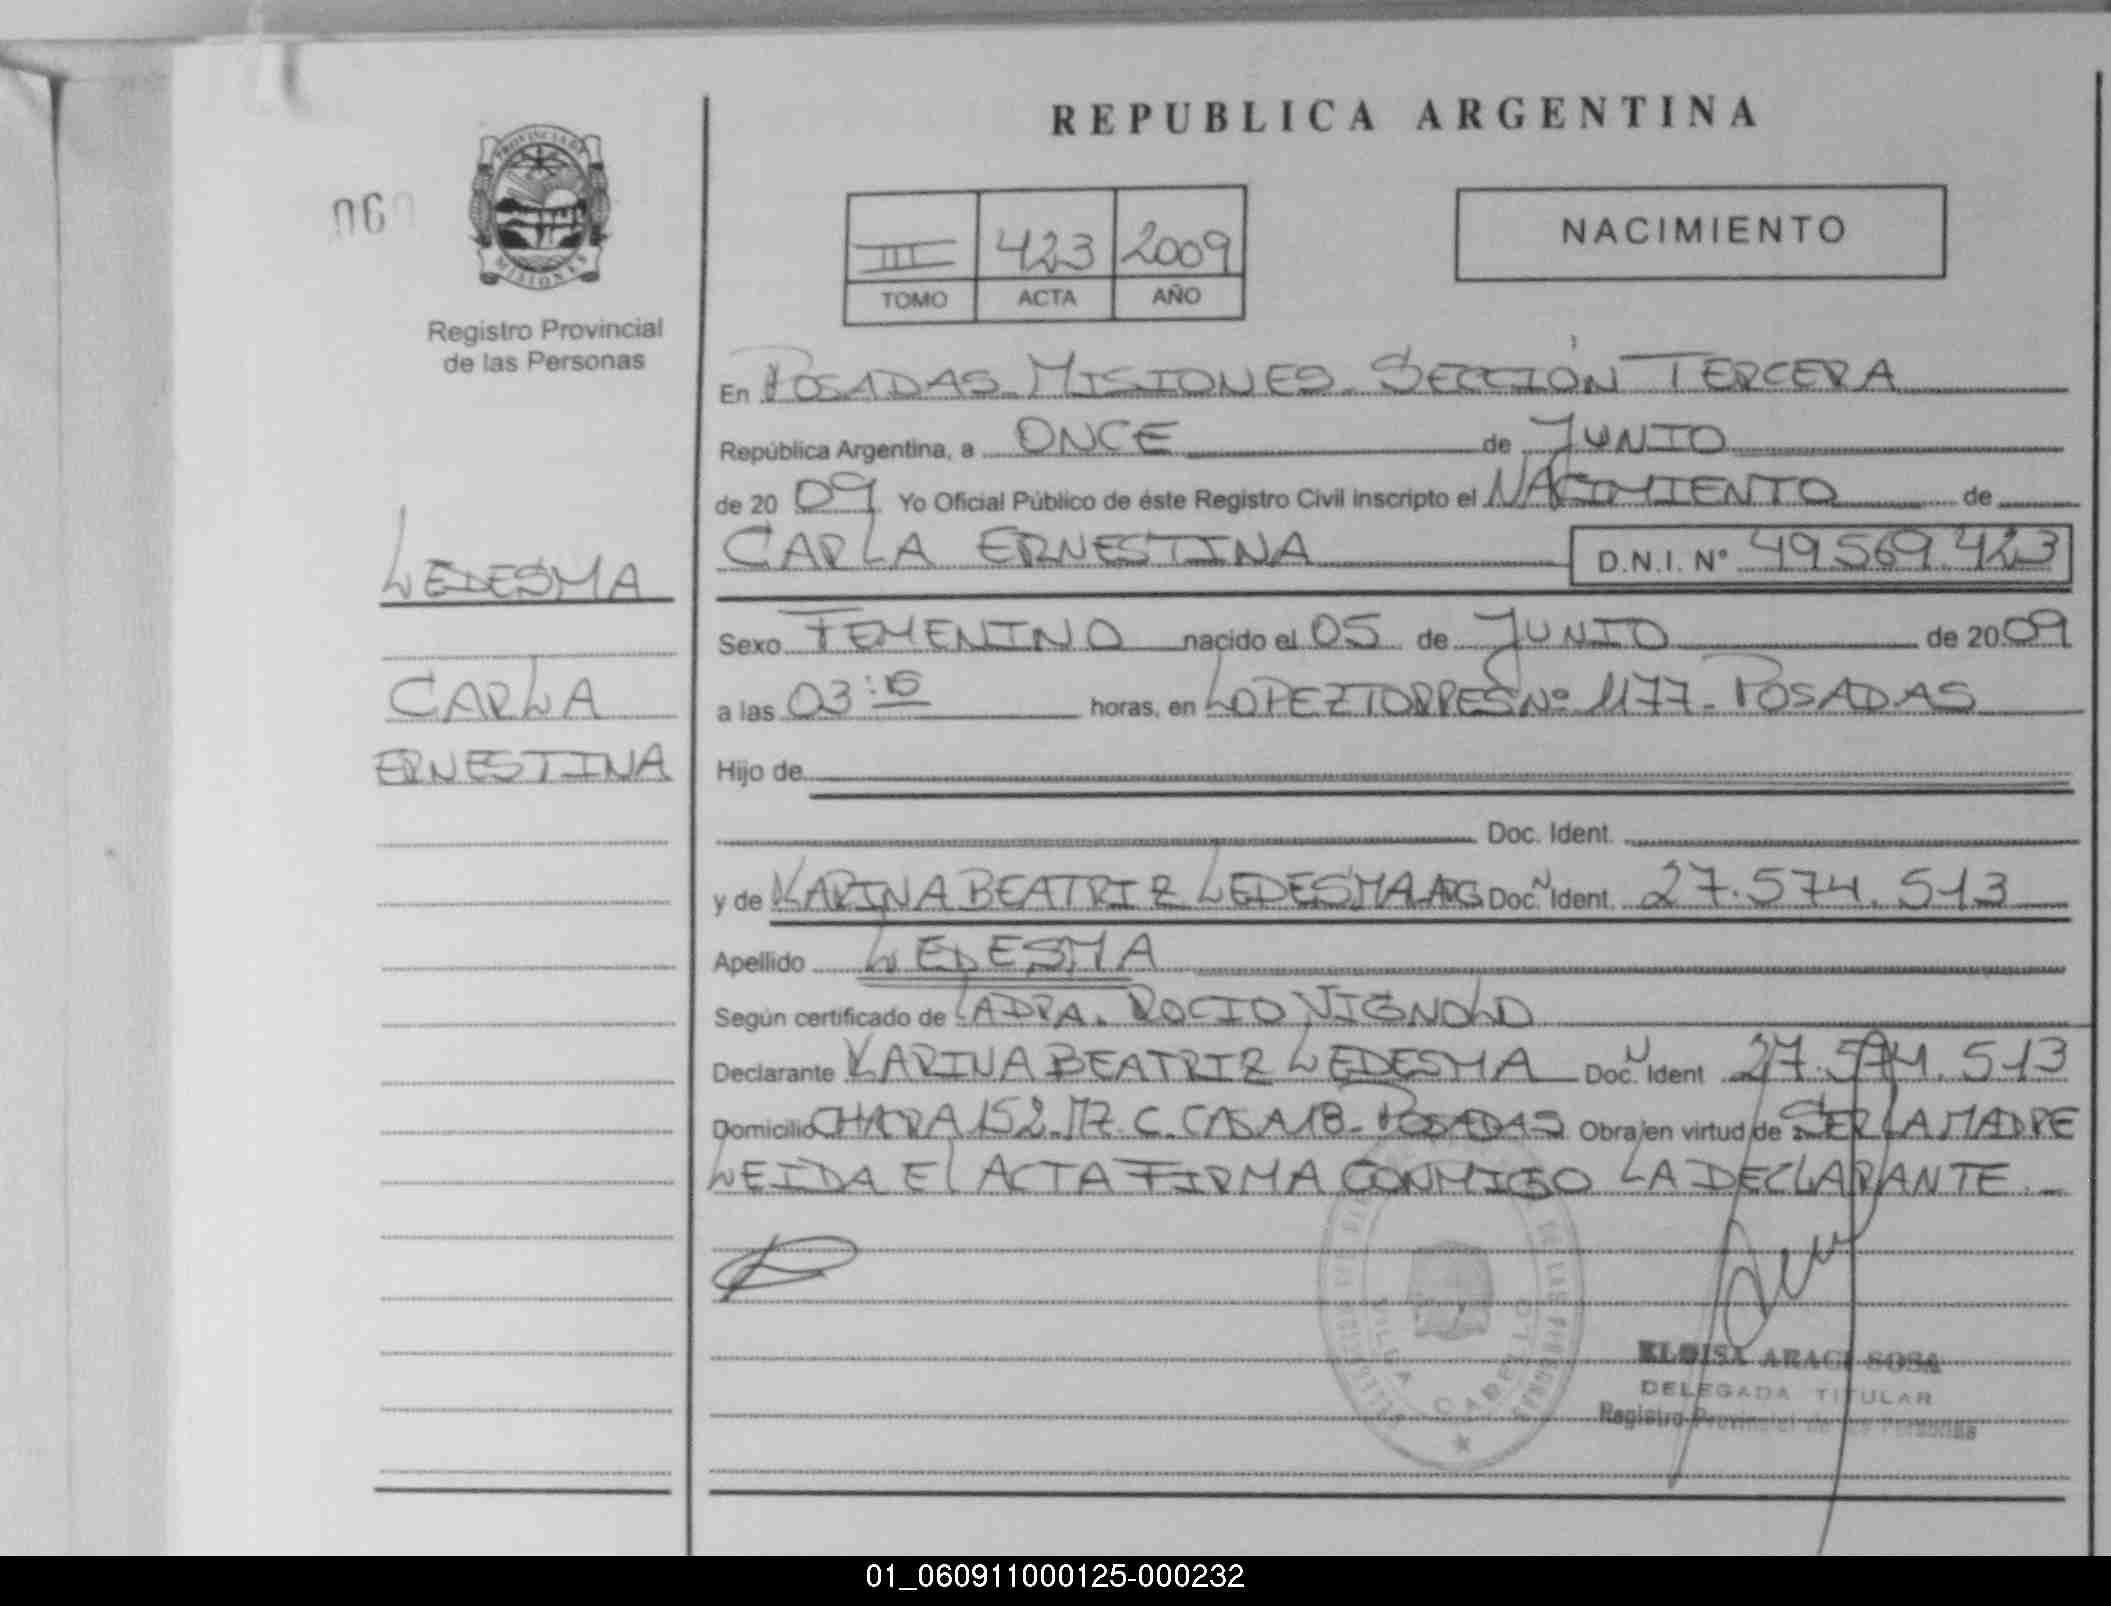 REPUBLICA ARGENTINA
PROVINCIA DE
MISIONES
Registro Provincial
de las Personas
III 423 2009
TOMO ACTA AÑO
NACIMIENTO
En POSADAS - MISIONES - SECCIÓN TERCERA
República Argentina, a ONCE de JUNIO
de 20 09 Yo Oficial Público de éste Registro Civil inscripto el NACIMIENTO de
CARLA ERNESTINA D.N.I. Nº 49.569.423
LEDESMA
CARLA
ERNESTINA
Sexo FEMENINO nacido el 05 de JUNIO de 20 09
a las 03: horas, en LOPEZ TORRES Nº 1177 - POSADAS
Hijo de
Doc. Ident.
y de KARINA BEATRIZ LEDESMA ARG Doc. Ident. 27.574.513
Apellido LEDESMA
Según certificado de LA DRA. ROCIO VIGNOLO
Declarante KARINA BEATRIZ LEDESMA Doc. Ident 27.574.513
Domicilio 152 - MZ. C. CASA 18 - POSADAS Obra en virtud de SER LA MADRE
LEIDA EL ACTA FIRMA CONMIGO LA DECLARANTE. -
ELOISA ARACI SOSA
DELEGADA TITULAR
Registro Provincial de las Personas
01_060911000125-000232